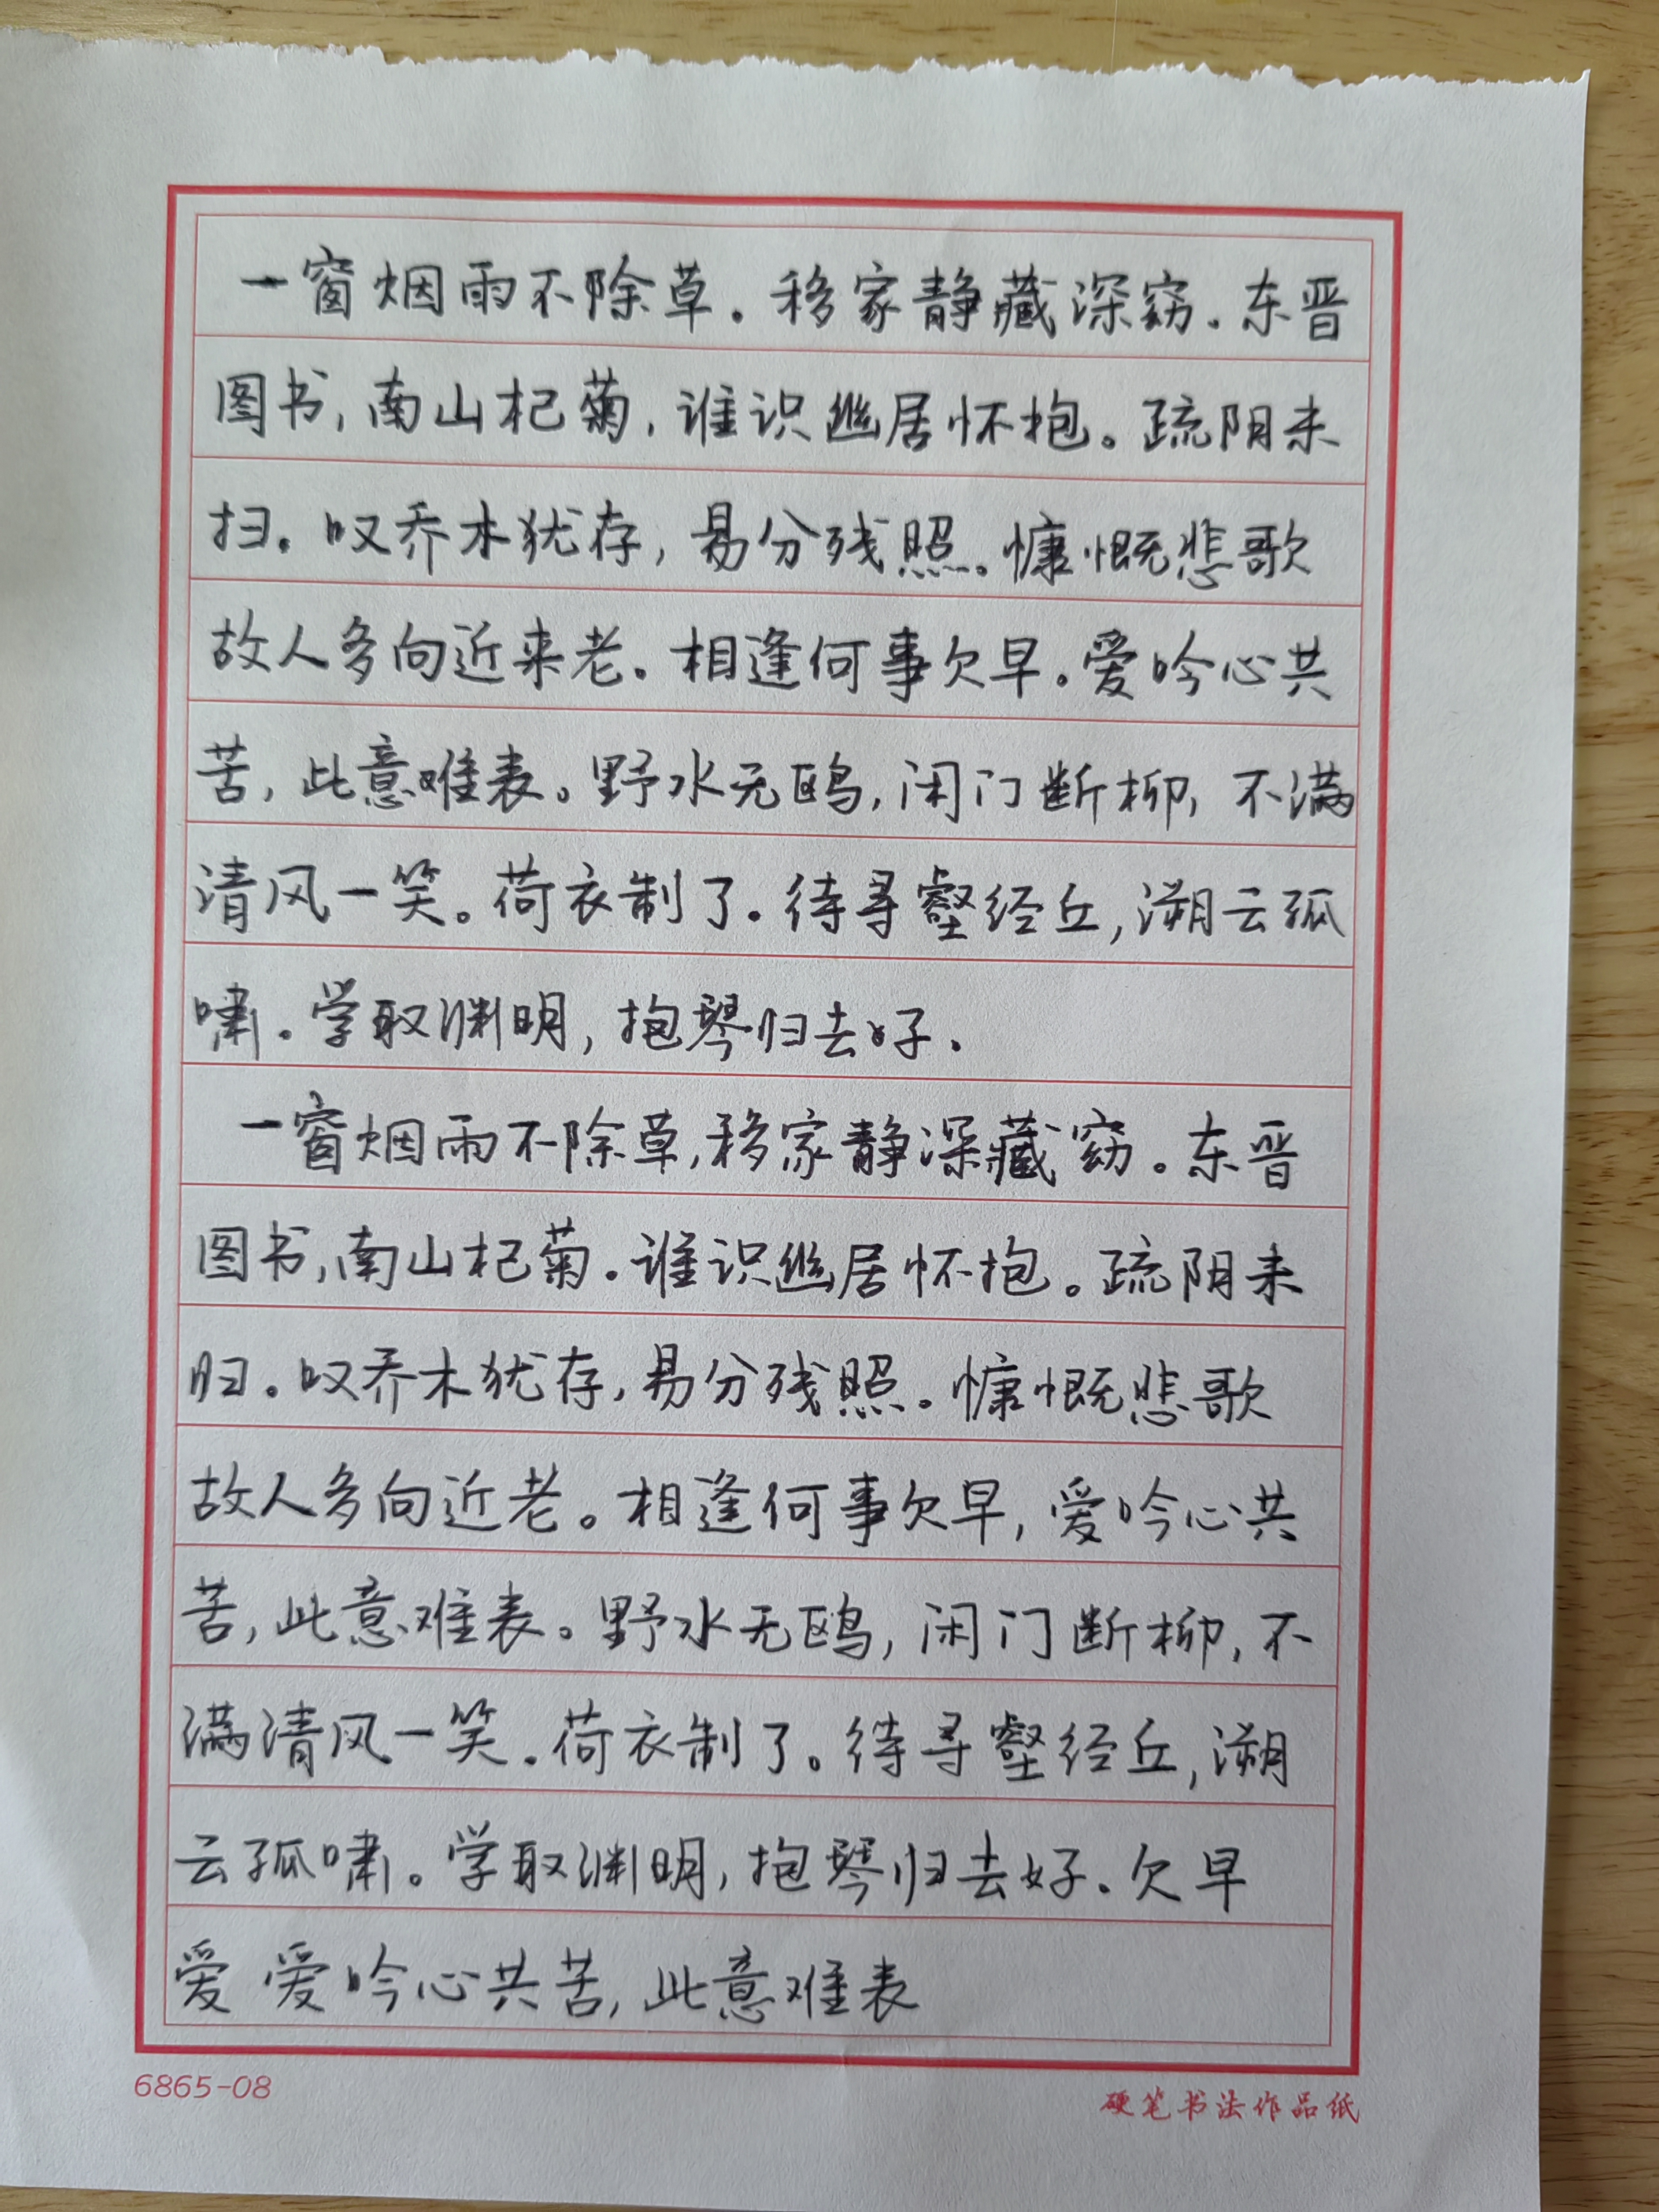 一窗烟雨不除草。移家静藏深窈。东晋
图书,南山杞菊,谁识幽居怀抱。疏阴未
扫。叹乔木犹存,易分残照。慷慨悲歌
故人多向近来老。相逢何事欠早。爱吟心共
苦,此意难表。野水无鸥,闲门断柳,不满
清风一笑。荷衣制了。待寻壑经丘,溯云孤
啸。学取渊明,抱琴归去好.
一窗烟雨不除草,移家静深藏窈。东晋
图书,南山杞菊.谁识幽居怀抱。疏阴未
归。叹乔木犹存,易分残照。慷慨悲歌
故人多向近老。相逢何事欠早,爱吟心共
苦,此意难表。野水无鸥,闲门断柳,不
满清风一笑.荷衣制了。待寻壑经丘,溯
云孤啸。学取渊明,抱琴归去好.欠早
爱 爱吟心共苦,此意难表
6865-08
硬笔书法作品纸